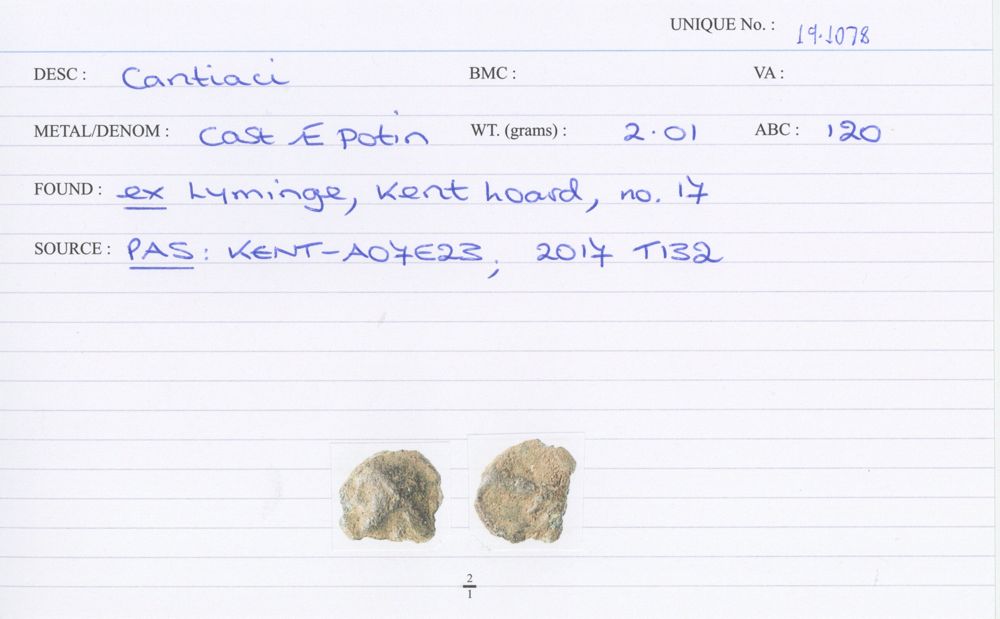 UNIQUE No. : 19.1078
DESC : Cantiaci BMC : VA :
METAL/DENOM : Cast Æ potin WT. (grams) : 2.01 ABC : 120
FOUND : ex Lyminge, Kent hoard, no. 17
SOURCE : PAS: KENT-A07E23, 2017 T132
2
1